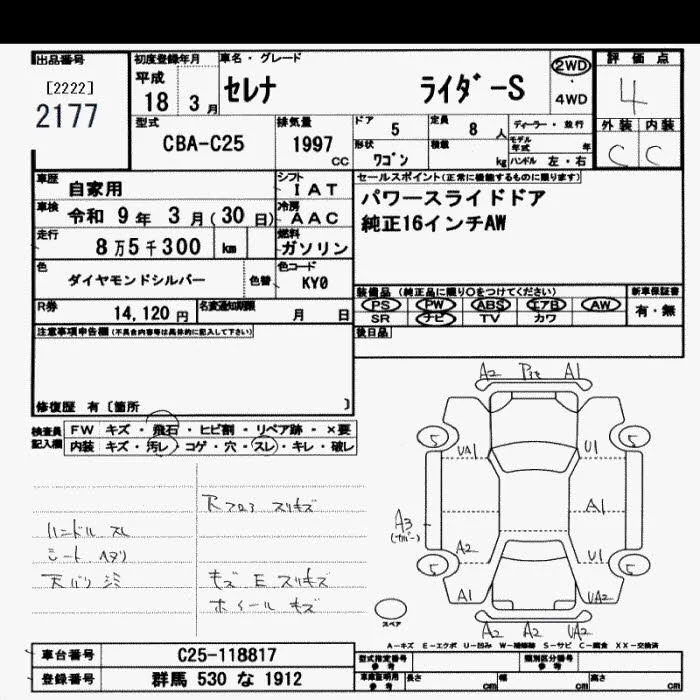 出品番号
[2222]
2177
初度登録年月
平成
18 3 月
車名・グレード
セレナ ライダｰS
2WD
・
4WD
評価点
4
外装 内装
C C
型式
CBA-C25
排気量
1997
CC
ドア
5
定員
8 人
ディーラー・並行
モデル年式 年
形状
ワゴン
積載
kg
ハンドル 左・右
車歴 自家用
シフト
IAT
車検 令和 9年 3月(30日)
冷房
AAC
走行
8万5千300 km
燃料
ガソリン
色
ダイヤモンドシルバー
色替
色コード
KY0
R券
14,120 円
名変通知期限
月 日
セールスポイント(正常に機能するものに限ります)
パワースライドドア
純正16インチAW
装備品(純正品に限り○をつけてください)
PS PW ABS エアB AW
SR ナビ TV カワ
新車保証書
有・無
後日品
注意事項申告欄(不具合内容等は具体的に記入して下さい)
修復歴 有〔箇所 〕
検査員記入欄
FW キズ・飛石・ヒビ割・リペア跡・×要
内装 キズ・汚レ・コゲ・穴・スレ・キレ・破レ
ハンドル スレ
シート ヘタリ
スリキズ
キズ E スリキズ
ホイール キズ
A2 A1
5 5
UA1 U1
A3 A1
A2 U1
5 5
A1 UA2
A2 A2 UA2
スペア
A－キズ E－エクボ U－凹み W－補修跡 S－サビ C－腐食 XX－交換済
車台番号 C25-118817
登録番号 群馬 530 な 1912
型式指定番号
参考
類別区分番号
参考
車庫証明用
参考
長さ cm
幅 cm
高さ cm